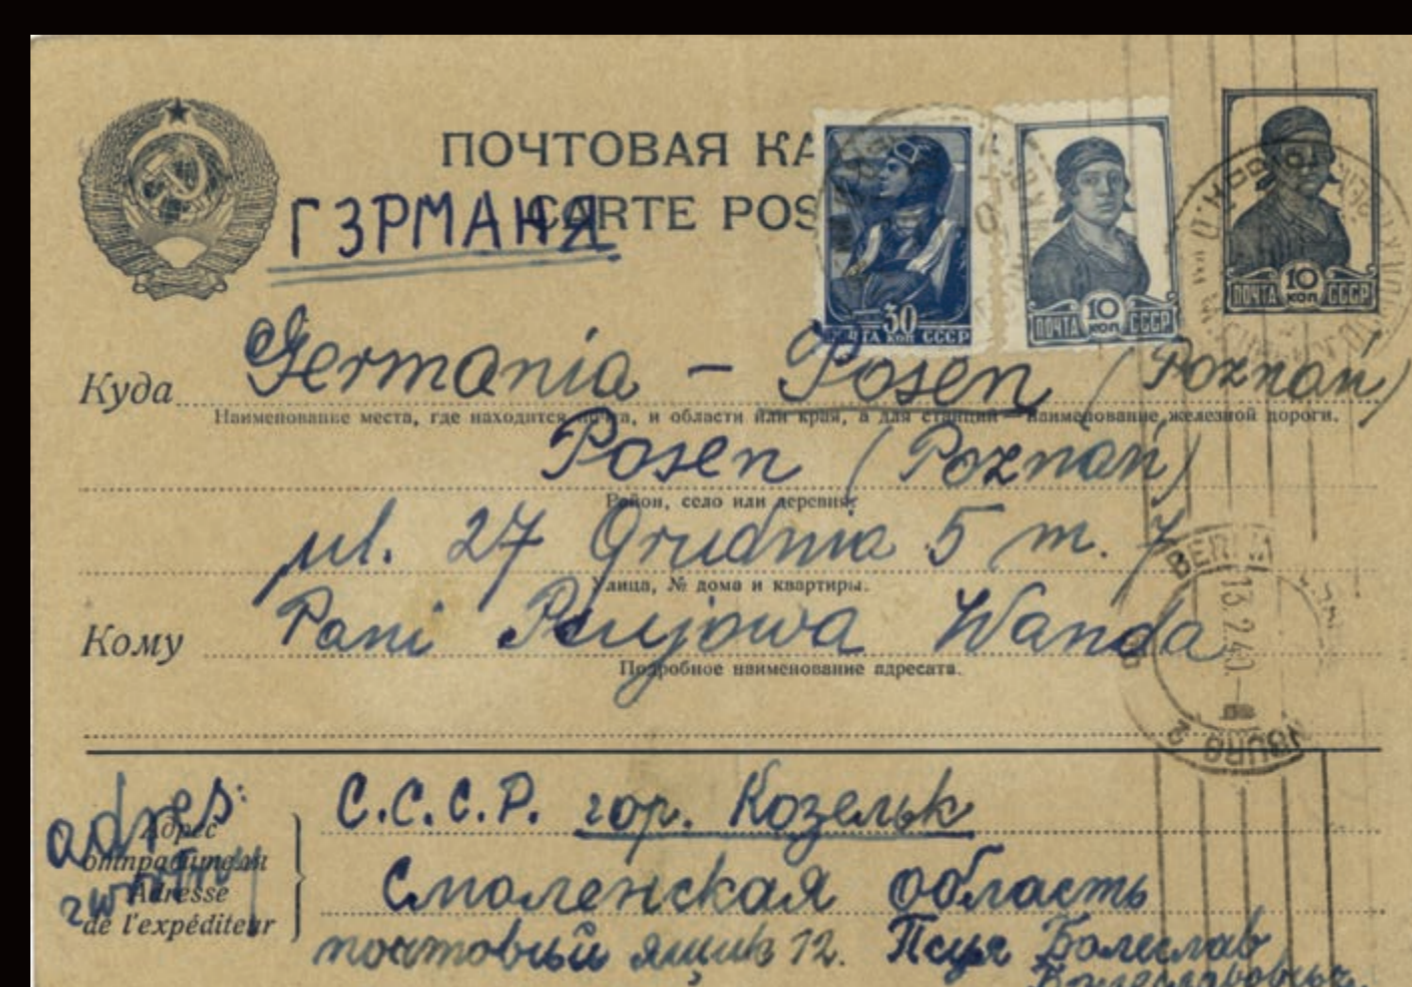 ПОЧТОВАЯ КА
CARTE POS
ГЗРМАНЯ
30
ПОЧТА КОП СССР
10
ПОЧТА КОП СССР
10
ПОЧТА КОП СССР
Куда Germania - Posen (Poznań)
Наименование места, где находится почта, и области или края, а для станций — наименование железной дороги.
Posen (Poznań)
Район, село или деревня
ul. 27 Grudnia 5 m. 7
Улица, № дома и квартиры.
Кому Pani Wanda
Подробное наименование адресата.
BERLIN
13.2.40
NBURG 2
adres: zwrotny
Адрес отправителя
Adresse de l'expéditeur
С.С.С.Р. гор. Козельск
Смоленская область
почтовый ящик 12. Болеслав